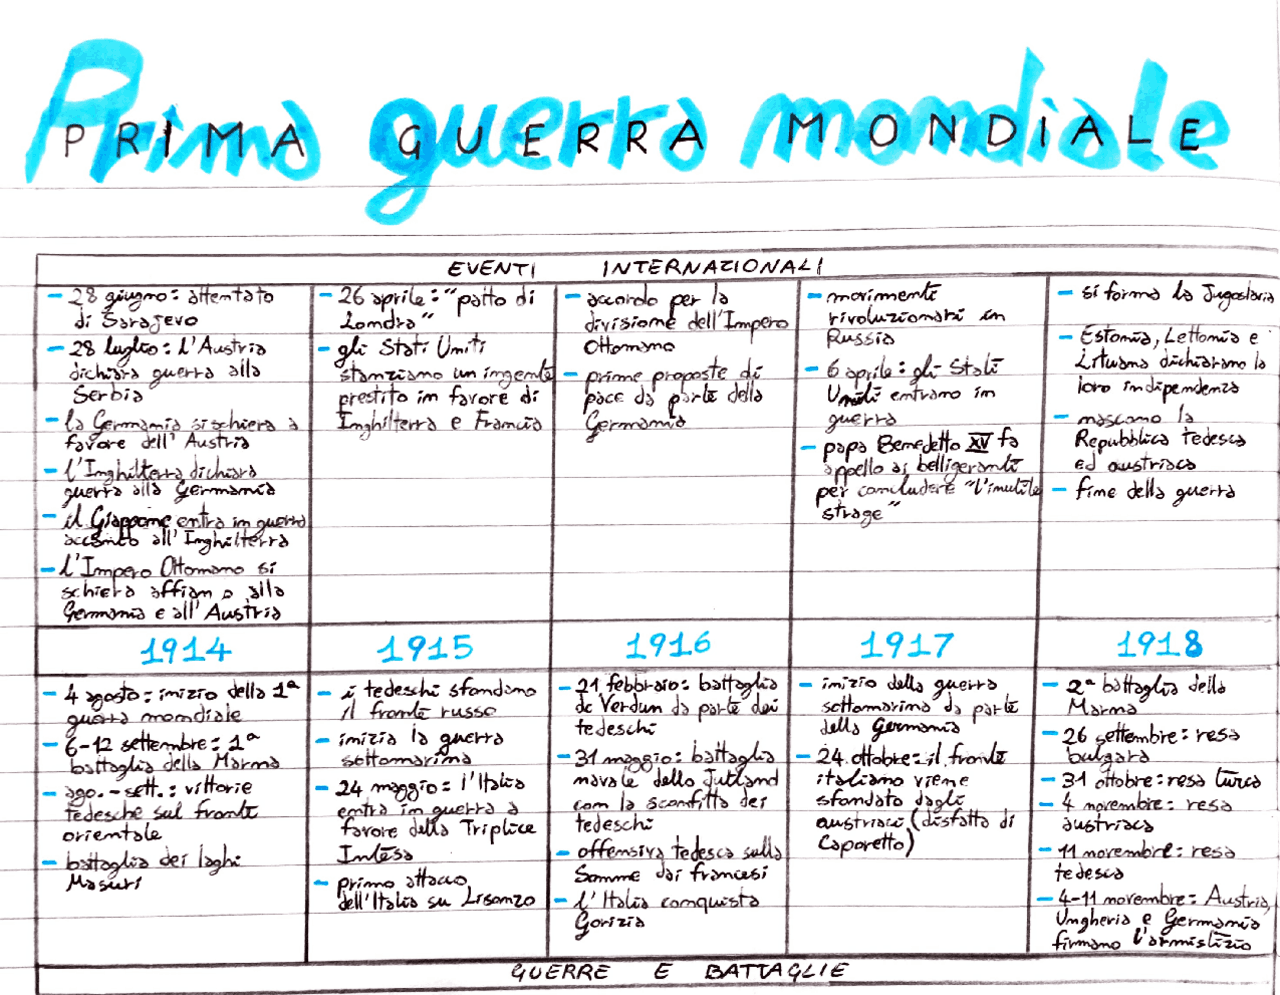 Prima guerra mondiale
PRIMA GUERRA MONDIALE
EVENTI INTERNAZIONALI
- 28 giugno: attentato
di Sarajevo
- 28 luglio: l'Austria
dichiara guerra alla
Serbia
- la Germania si schiera a
favore dell'Austria
- l'Inghilterra dichiara
guerra alla Germania
- il Giappone entra in guerra
accanto all'Inghilterra
- l'Impero Ottomano si
schiera affian o alla
Germania e all'Austria
- 26 aprile: "patto di
Londra"
- gli Stati Uniti
stanziano un ingente
prestito in favore di
Inghilterra e Francia
- accordo per la
divisione dell'Impero
Ottomano
- prime proposte di
pace da parte della
Germania
- movimenti
rivoluzionari in
Russia
- 6 aprile: gli Stati
Uniti entrano in
guerra
- papa Benedetto XV fa
appello ai belligeranti
per concludere "l'inutile
strage"
- si forma la Jugoslavia
- Estonia, Lettonia e
Lituana dichiarano la
loro indipendenza
- nascono la
Repubblica tedesca
ed austriaca
- fine della guerra
1914 1915 1916 1917 1918
- 4 agosto: inizio della 1ª
guerra mondiale
- 6-12 settembre: 1ª
battaglia della Marna
- ago.-sett.: vittorie
tedesche sul fronte
orientale
- battaglia dei laghi
Masuri
- i tedeschi sfondano
il fronte russo
- inizia la guerra
sottomarina
- 24 maggio: l'Italia
entra in guerra a
favore della Triplice
Intesa
- primo attacco
dell'Italia su Lisonzo
- 21 febbraio: battaglia
di Verdun da parte dei
tedeschi
- 31 maggio: battaglia
navale dello Jutland
con la sconfitta dei
tedeschi
- offensiva tedesca sulla
Somme dai francesi
- l'Italia conquista
Gorizia
- inizio della guerra
sottomarina da parte
della Germania
- 24 ottobre: il fronte
italiano viene
sfondato dagli
austriaci (disfatta di
Caporetto)
- 2ª battaglia della
Marna
- 26 settembre: resa
bulgara
- 31 ottobre: resa turca
- 4 novembre: resa
austriaca
- 11 novembre: resa
tedesca
- 4-11 novembre: Austria,
Ungheria e Germania
firmano l'armistizio
GUERRE E BATTAGLIE